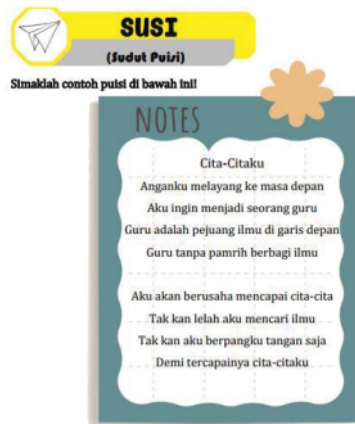 SUSI
(Sudut Puisi)
Simaklah contoh puisi di bawah ini!
NOTES
Cita-Citaku
Anganku melayang ke masa depan
Aku ingin menjadi seorang guru
Guru adalah pejuang ilmu di garis depan
Guru tanpa pamrih berbagi ilmu
Aku akan berusaha mencapai cita-cita
Tak kan lelah aku mencari ilmu
Tak kan aku berpangku tangan saja
Demi tercapainya cita-citaku